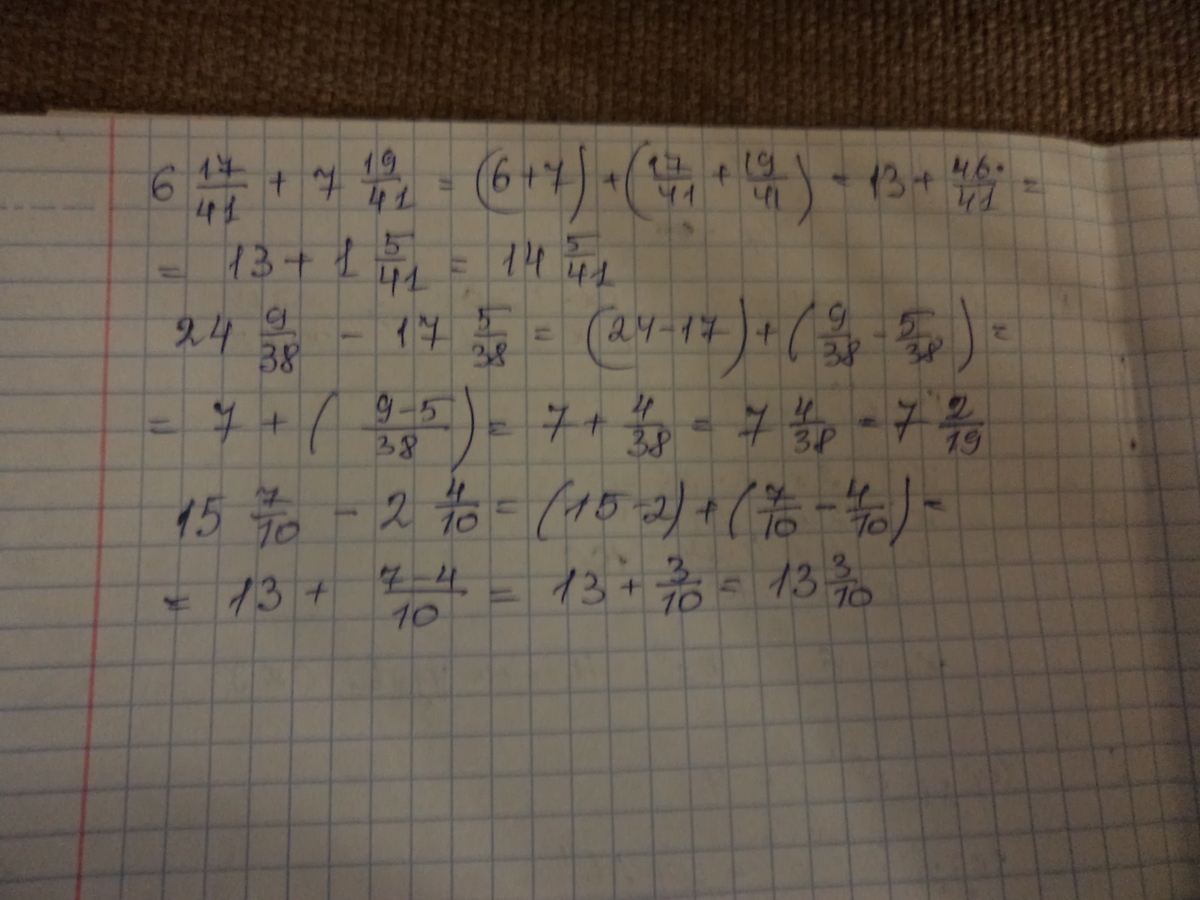 6 17/41 + 7 19/41 = (6+7) + (17/41 + 19/41) = 13 + 46/41 =
= 13 + 1 5/41 = 14 5/41
24 9/38 - 17 5/38 = (24-17) + (9/38 - 5/38) =
= 7 + (9-5/38) = 7 + 4/38 = 7 4/38 = 7 2/19
15 7/10 - 2 4/10 = (15-2) + (7/10 - 4/10) =
= 13 + 7-4/10 = 13 + 3/10 = 13 3/10